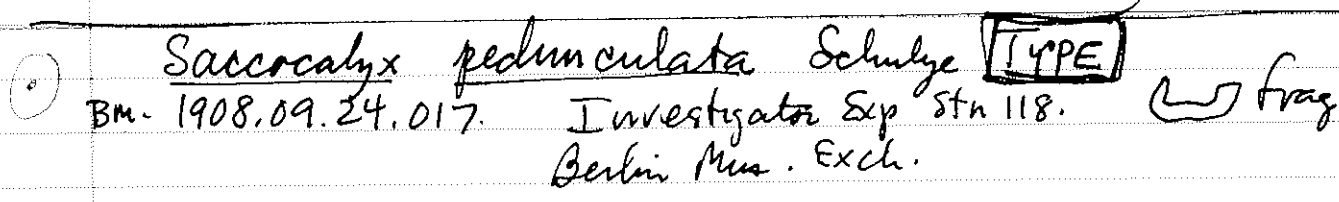 Saccocalyx pedunculata Schulze TYPE
BM. 1908.09.24.017. Investigator Exp Stn 118. frag
Berlin Mus. Exch.